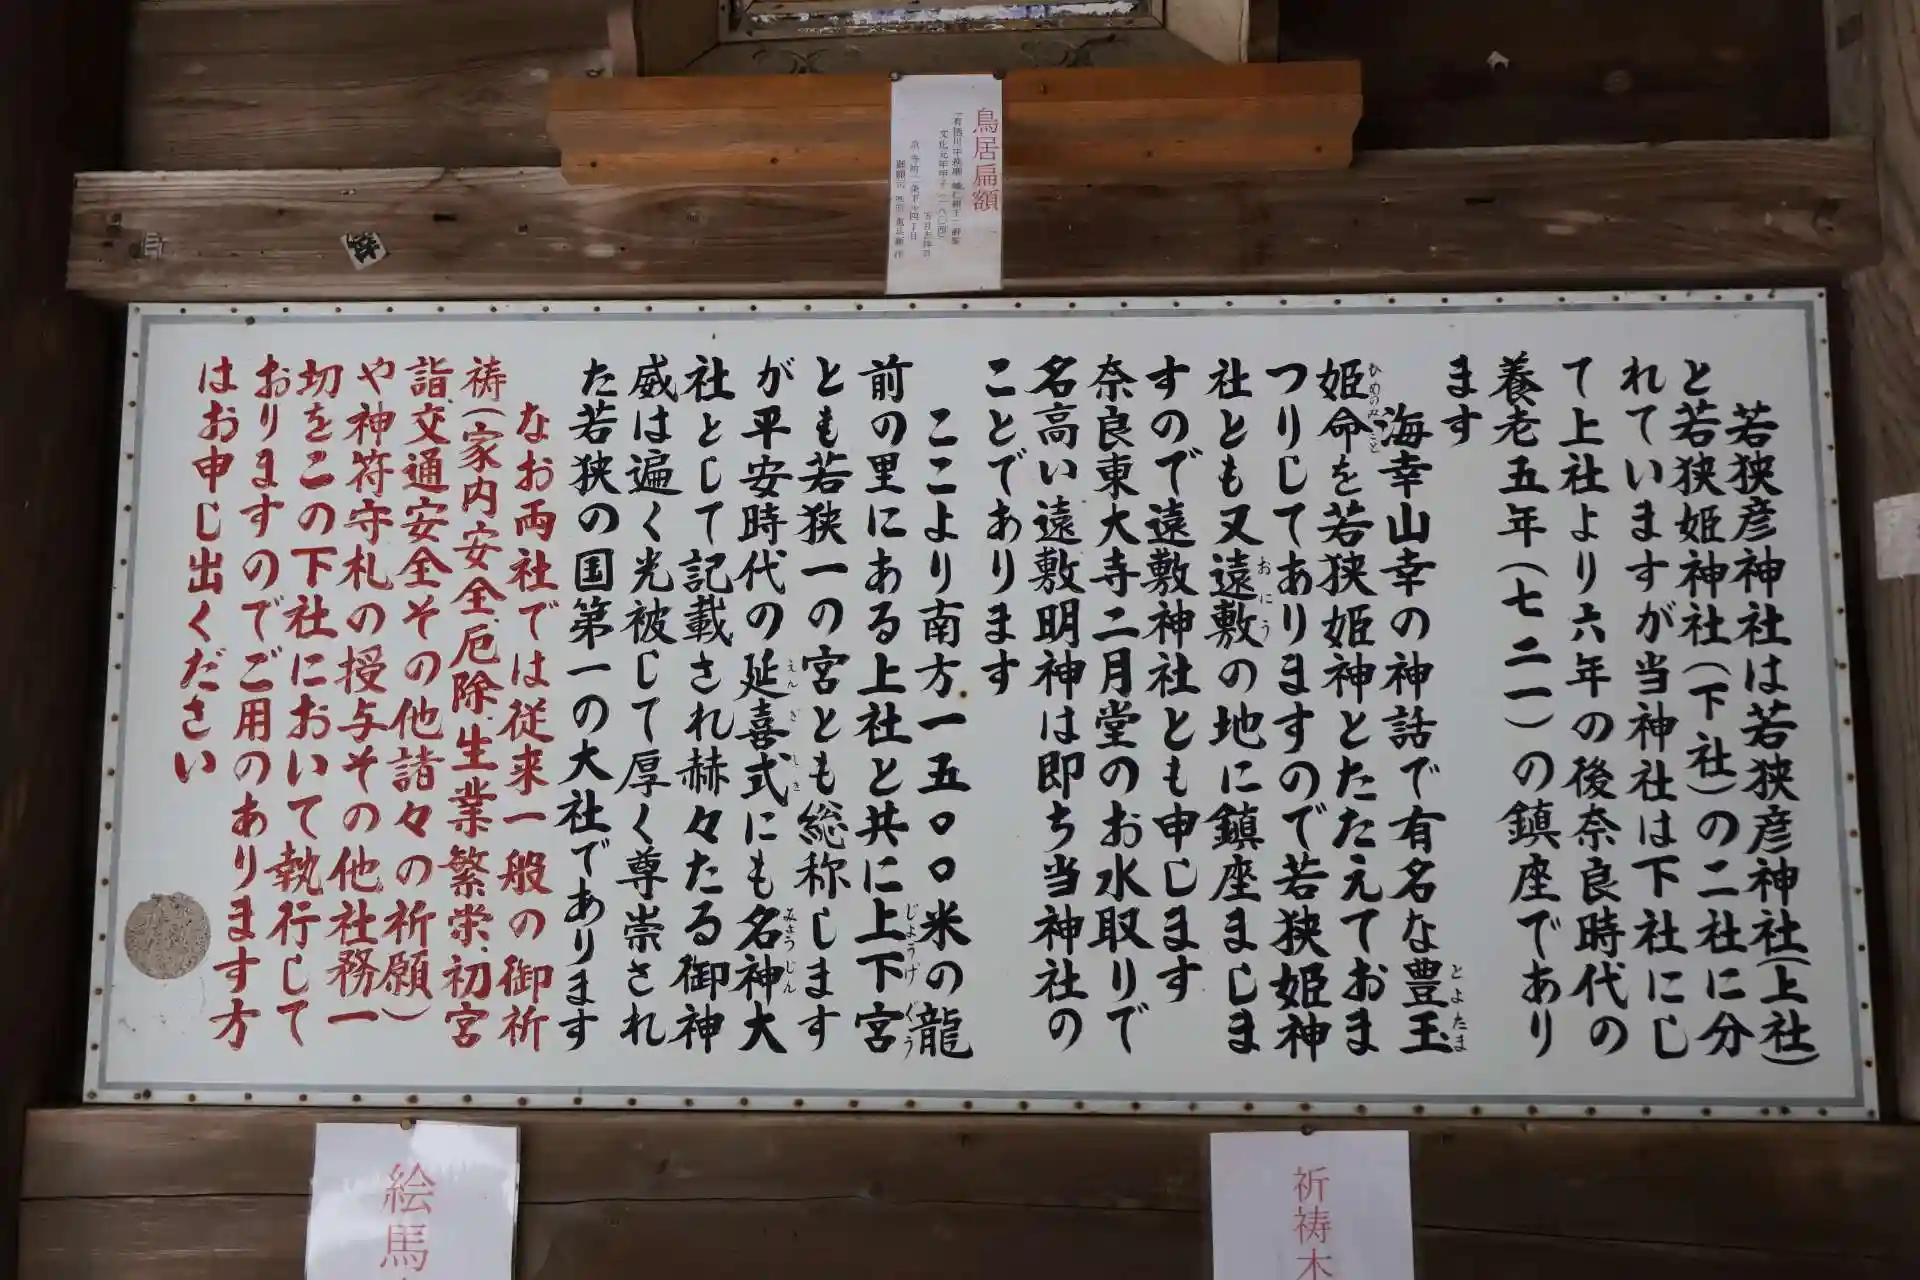 鳥居扁額
若狭彦神社は若狭彦神社(上社)
と若狭姫神社(下社)の二社に分
れていますが当神社は下社にし
て上社より六年の後奈良時代の
養老五年(七二一)の鎮座であり
ます
海幸山幸の神話で有名な豊玉
とよたま
姫命を若狭姫神とたたえておま
ひめのみこと
つりしてありますので若狭姫神
社とも又遠敷の地に鎮座ましま
おにう
すので遠敷神社とも申します
奈良東大寺二月堂のお水取りで
名高い遠敷明神は即ち当神社の
ことであります
ここより南方一五〇〇米の龍
前の里にある上社と共に上下宮
じようげぐう
とも若狭一の宮とも総称します
が平安時代の延喜式にも名神大
えんぎしき
みようじん
社として記載され赫々たる御神
威は遍く光被して厚く尊崇され
た若狭の国第一の大社であります
なお両社では従来一般の御祈
祷(家内安全、厄除、生業繁栄、初宮
詣、交通安全その他諸々の祈願)
や神符守札の授与その他社務一
切をこの下社において執行して
おりますのでご用のあります方
はお申し出ください
祈祷木
絵馬